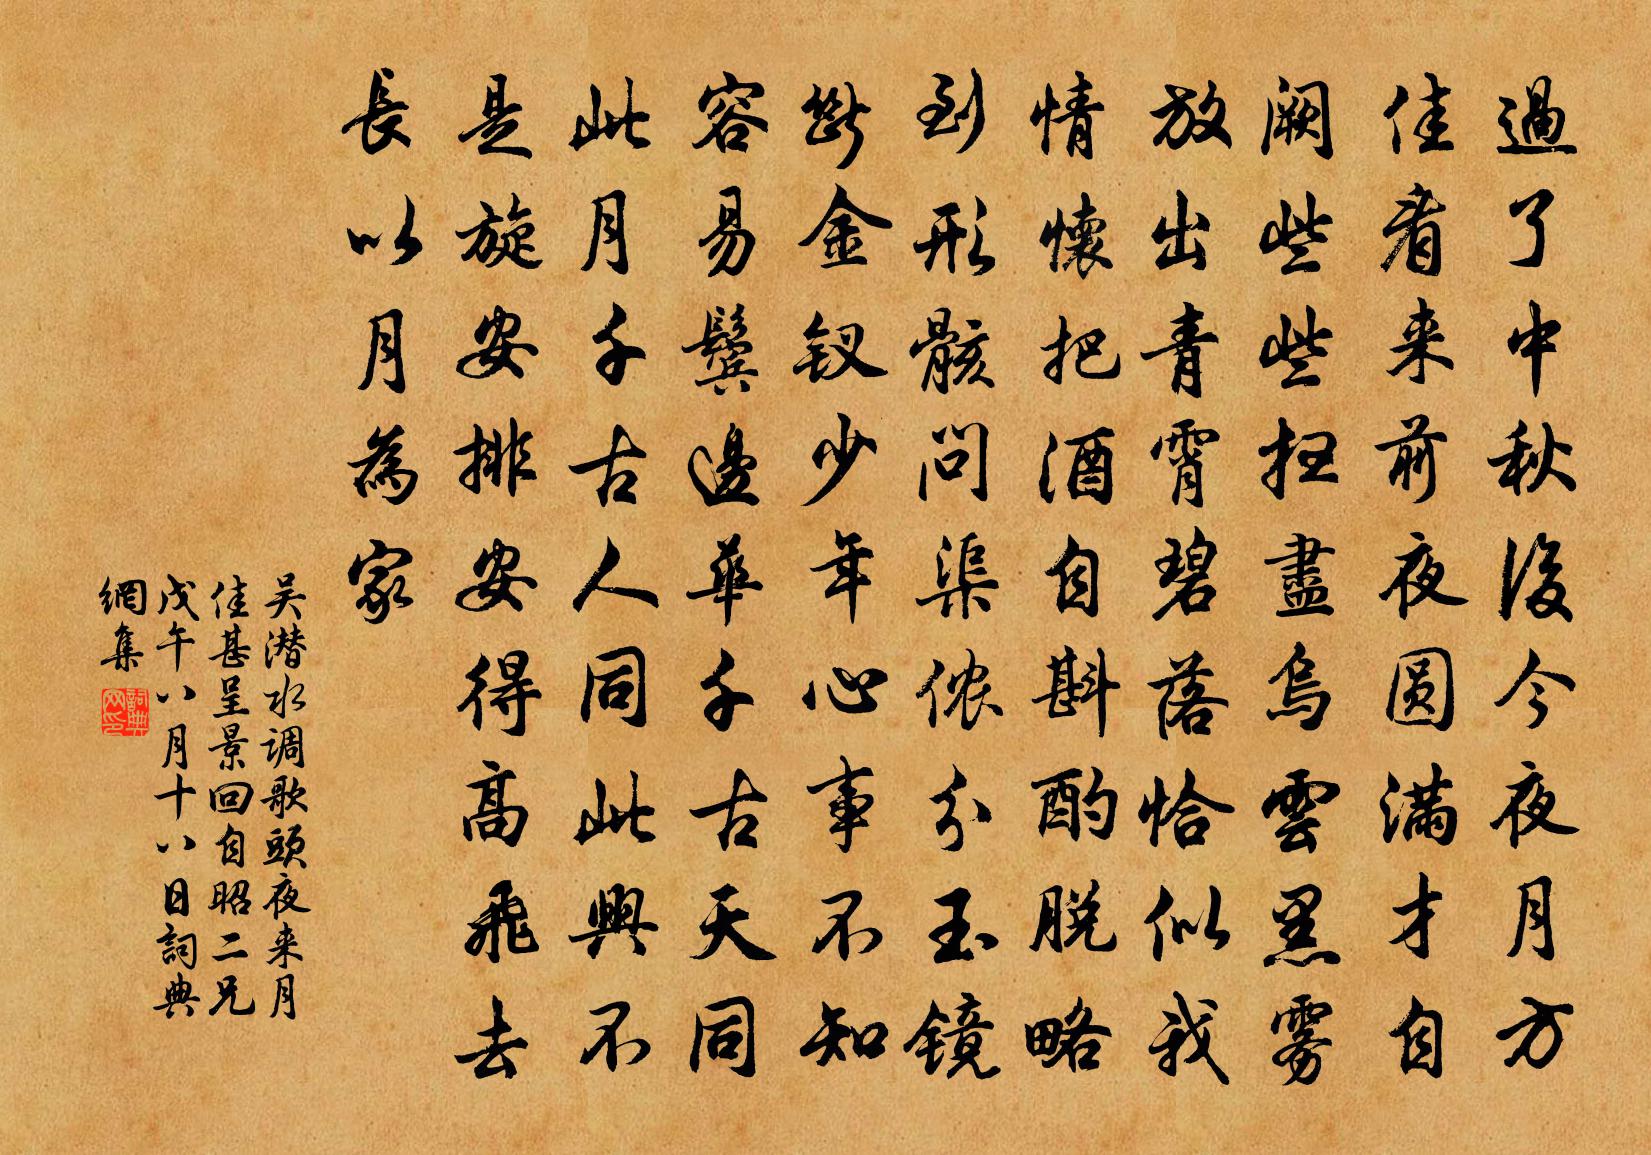 過了中秋後今夜月方
佳看来前夜圆满才自
阙些些扫盡烏雲黑雾
放出青霄碧落恰似我
情懷把酒自斟酌脱略
到形骸问渠侬分玉镜
斷金钗少年心事不知
容易鬓邊華千古天同
此月千古人同此興不
是旋安排安得高飛去
長以月為家
吴潜水调歌頭夜来月
佳甚呈景回自昭二兄
戊午八月十八日詞典
網集
詞典网印